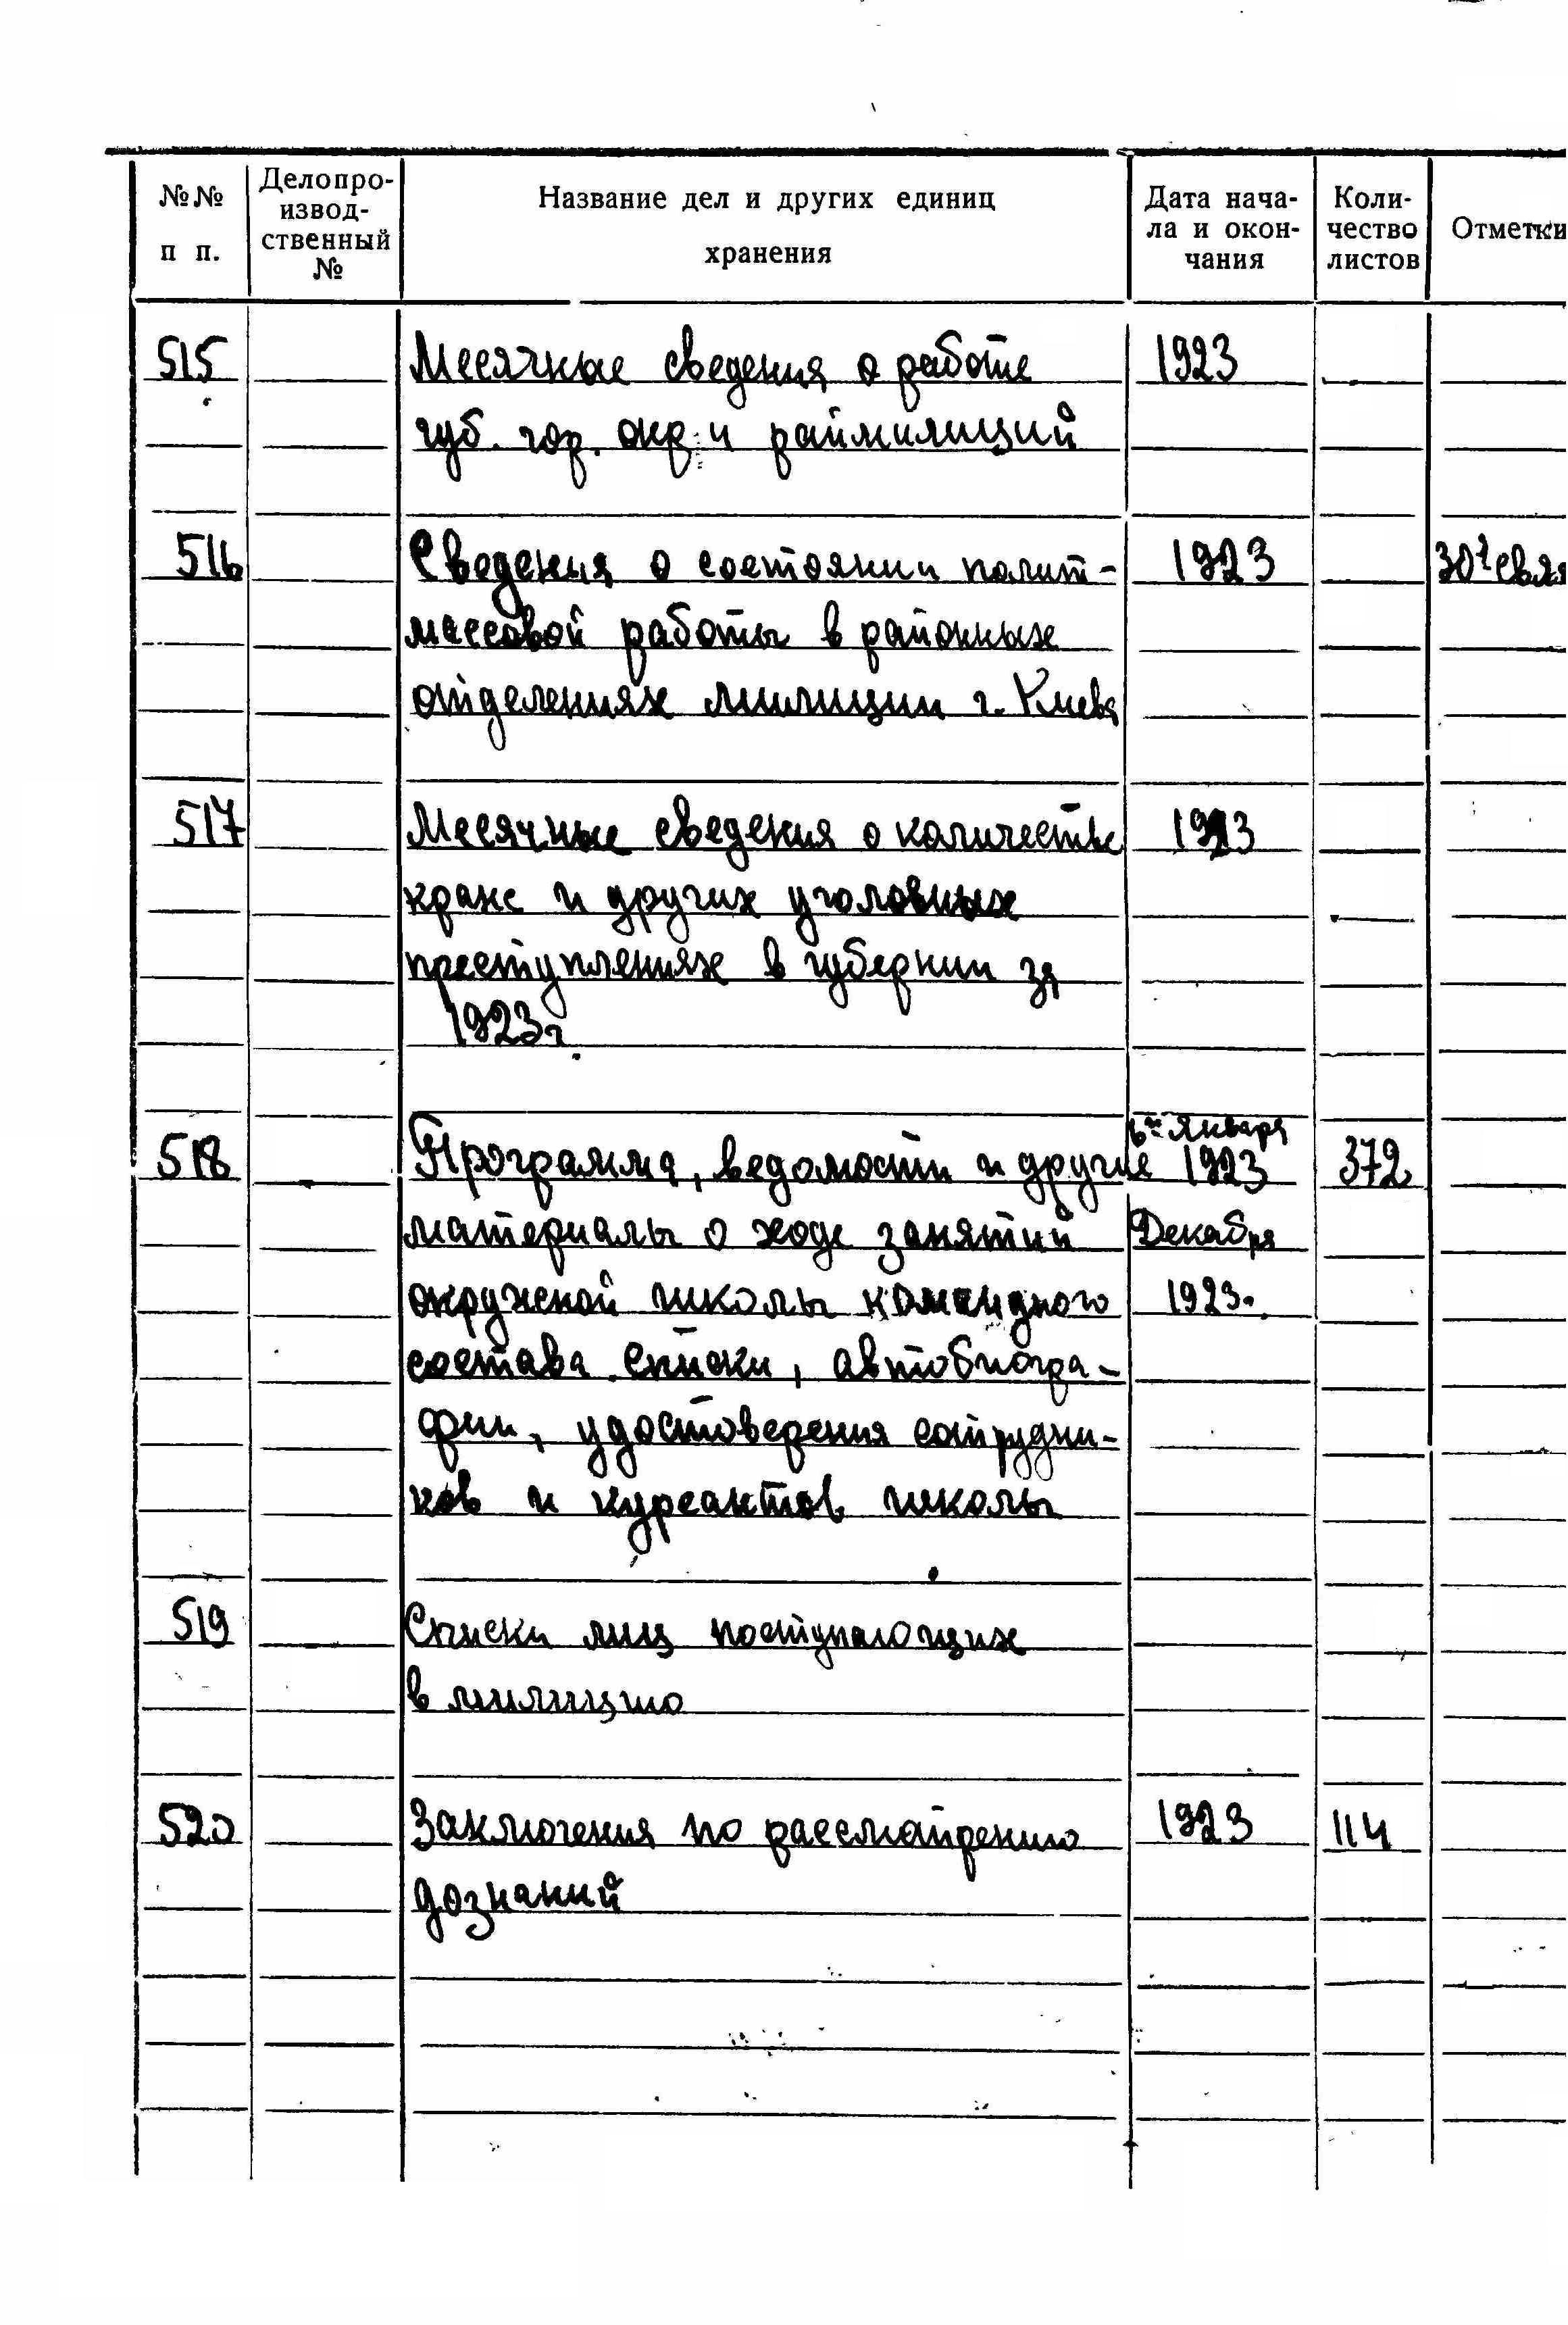 №№ п п.
Делопроизвод-
ственный №
Название дел и других единиц
хранения
Дата нача-
ла и окон-
чания
Коли-
чество
листов
Отметки
515 Месячные сведения о работе 1923
губ. гор. окр. и раймилиций
516 Сведения о состоянии полит- 1923
массовой работы в районных
отделениях милиции г. Киева
517 Месячные сведения о количестве 1923
краж и других уголовных
преступлениях в губернии за
1923г.
Января
518 Программа, ведомости и другие 1923 372
материалы о ходе занятий Декабря
окружной школы командного 1923.
состава. Списки, автобиогра-
фии, удостоверения сотрудни-
ков и курсантов школы
519 Списки лиц поступающих
в милицию
520 Заключения по рассмотрению 1923 114
дознаний